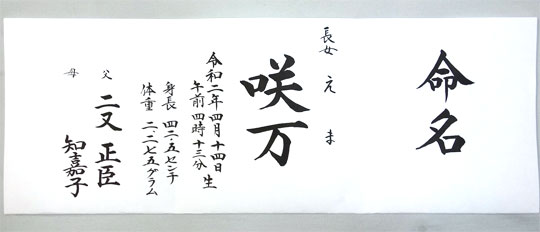 命名
長女 えま
咲万
令和二年四月十四日
午前四時十三分 生
身長 四二・五センチ
体重 二・二七五グラム
父 二又 正臣
母 知嘉子